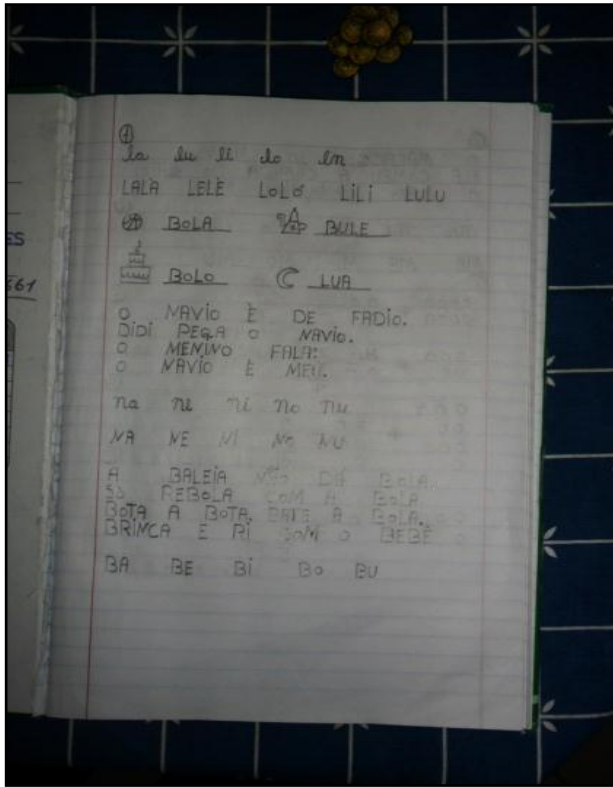 1
la lu li lo ln
LALÁ LELÉ LOLÓ LILI LULU
BOLA BULE
BOLO LUA
O NAVIO É DE FADIO.
DIDI PEGA O NAVIO.
O MENINO FALA:
O NAVIO É MEU.
na ne ni no nu
NA NE NI NO NU
A BALEIA NÃO DÁ BOLA.
SÓ REBOLA COM A BOLA
BOTA A BOTA. BATE A BOLA.
BRINCA E RI COM O BEBÊ
BA BE BI BO BU
ES
661